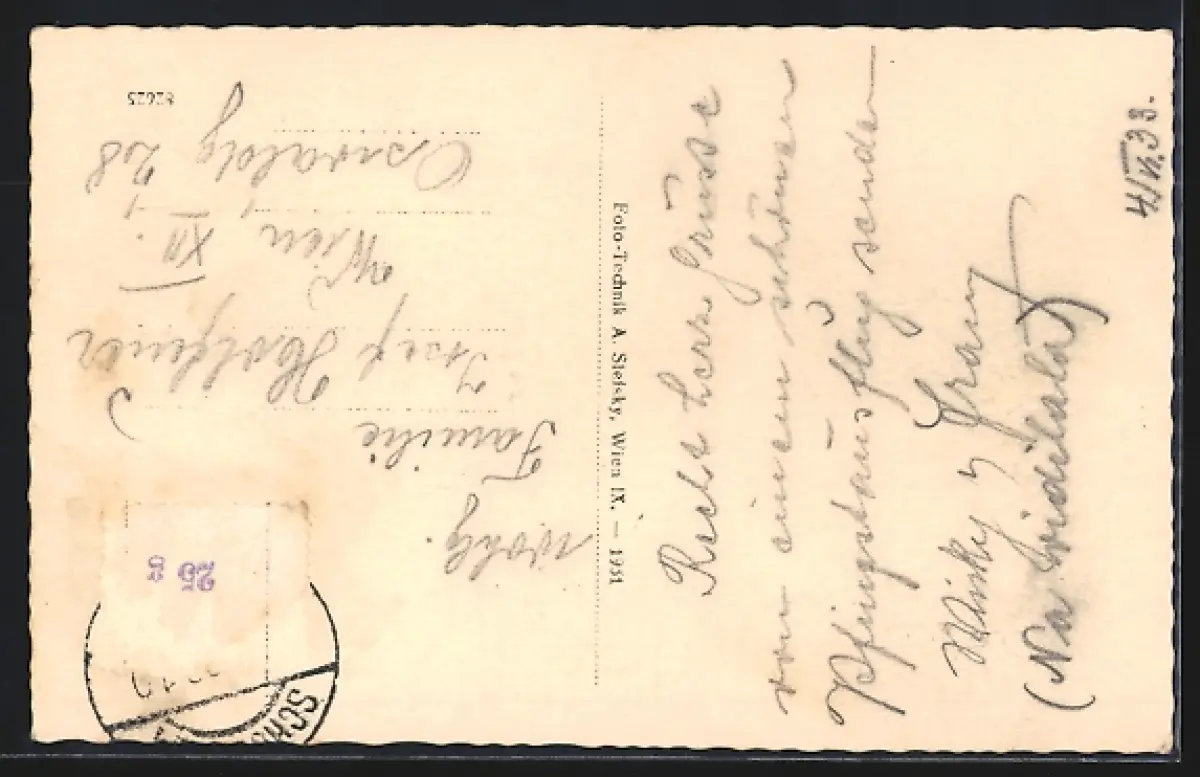 4/VI.33.
Recht herz. Grüsse
von einem schönen
Pfingstausflug senden
Mitzky u Franz
(Na
Foto-Technik A. Stefsky, Wien IX. — 1931
Wohlg.
Familie
Josef
Wien XII.
Oswaldg 28
82625
25
SCH